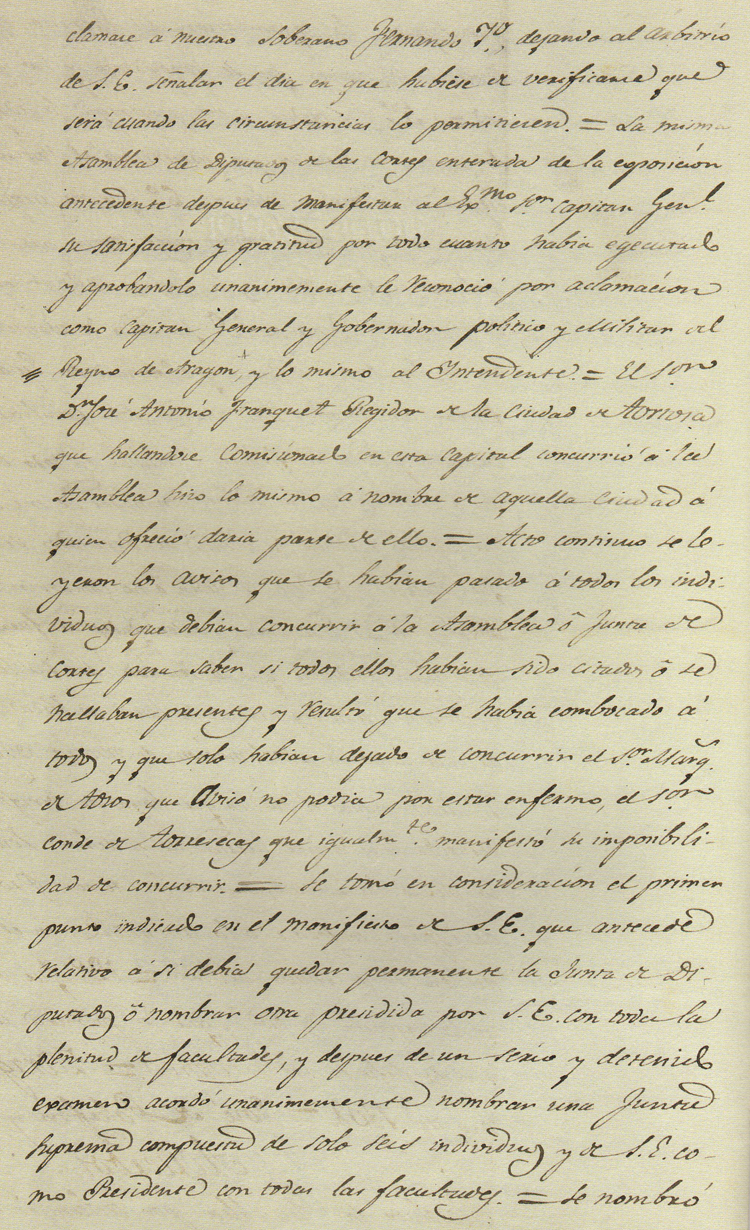 clamase á nuestro Soberano Fernando 7º, dejando al arbitrio
de S.E. señalar el dia en que hubiese de verificarse que
será cuando las circunstancias lo permitiesen. = La misma
Asamblea de Diputados de las Cortes enterada de la exposición
antecedente despues de manifestar al Exmo Sor Capitan Genl.
su satisfacción y gratitud por todo cuanto habia egecutado
y aprobandolo unanimemente le reconoció por aclamación
como Capitan General y Gobernador politico y Militar del
= Reyno de Aragon, y lo mismo al Intendente. = El Sor
Dn José Antonio Franquet Regidor de la Ciudad de Tortosa
que hallandose Comisionado en esta Capital concurrió á la
Asamblea hizo lo mismo á nombre de aquella Ciudad á
quien ofreció daria parte de ello. = Acto continuo se le-
yeron los avisos que se habian pasado á todos los indi-
viduos que debian concurrir á la Asamblea ó Junta de
Cortes para saber si todos ellos habian sido citados ó se
hallaban presentes y resultó que se habia combocado á
todos y que solo habian dejado de concurrir el Sor Marq.
de Tosos que Avisó no podia por estar enfermo, el Sor
Conde de Torresecas que igualmte. manifestó su imposibili-
dad de concurrir. = Se tomó en consideración el primer
punto indicado en el manifiesto de S.E. que antecede
relativo á si debia quedar permanente la Junta de Di-
putados ó nombrar otra presidida por S.E. con toda la
plenitud de facultades, y despues de un serio y detenido
examen acordó unanimemente nombrar una Junta
Suprema compuesta de solo seis individuos y de S.E. co-
mo Presidente con todas las facultades. = Se nombró